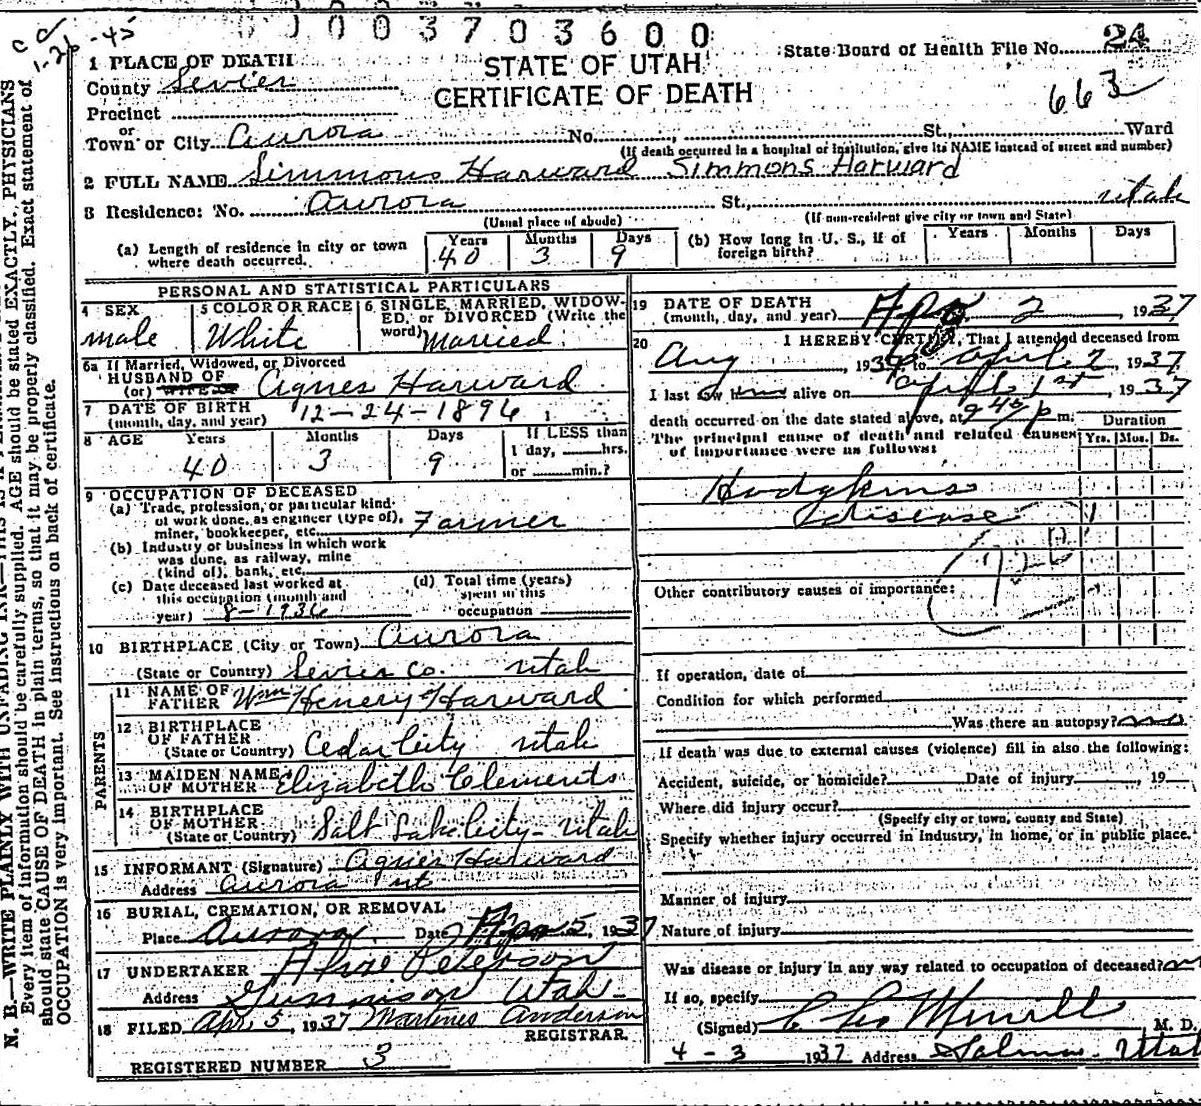 0003703600
State Board of Health File No. 24
663
STATE OF UTAH
CERTIFICATE OF DEATH
1 PLACE OF DEATH
County Sevier
Precinct
or
Town or City Aurora No. , St., Ward
(If death occurred in a hospital or institution, give its NAME instead of street and number)
2 FULL NAME Simmons Harward Simmons Harward
3 Residence: No. Aurora St., Utah
(Usual place of abode) (If non-resident give city or town and State)
(a) Length of residence in city or town where death occurred. Years 40 Months 3 Days 9
(b) How long in U. S., if of foreign birth? Years Months Days
PERSONAL AND STATISTICAL PARTICULARS
4 SEX male
5 COLOR OR RACE White
6 SINGLE, MARRIED, WIDOWED, or DIVORCED (Write the word) Married
6a If Married, Widowed, or Divorced
HUSBAND OF
(or) WIFE OF Agnes Harward
7 DATE OF BIRTH
(month, day, and year) 12-24-1896
8 AGE Years 40 Months 3 Days 9 If LESS than 1 day, hrs. or min.?
9 OCCUPATION OF DECEASED
(a) Trade, profession, or particular kind of work done, as engineer (type of), miner, bookkeeper, etc. Farmer
(b) Industry or business in which work was done, as railway, mine (kind of), bank, etc.
(c) Date deceased last worked at this occupation (month and year) 8-1936
(d) Total time (years) spent in this occupation
10 BIRTHPLACE (City or Town) Aurora
(State or Country) Sevier Co. Utah
PARENTS
11 NAME OF FATHER Wm Henery Harward
12 BIRTHPLACE OF FATHER
(State or Country) Cedar City Utah
13 MAIDEN NAME OF MOTHER Elizabeth Clements
14 BIRTHPLACE OF MOTHER
(State or Country) Salt Lake City - Utah
15 INFORMANT (Signature) Agnes Harward
Address Aurora Ut
16 BURIAL, CREMATION, OR REMOVAL
Place Aurora Date Apr 5, 1937
17 UNDERTAKER Peterson
Address Gunnison Utah
18 FILED Apr. 5, 1937 Martines Anderson
REGISTRAR.
REGISTERED NUMBER 3
19 DATE OF DEATH
(month, day, and year) Apr 2 1937
20 I HEREBY CERTIFY, That I attended deceased from
Aug , 1936 to April 2 1937
I last saw him alive on April 1st , 1937
death occurred on the date stated above, at 9 45 p m.
The principal cause of death and related causes of importance were as follows:
Duration
Yrs. Mos. Ds.
Hodgkins
disease 1
Other contributory causes of importance:
If operation, date of
Condition for which performed
Was there an autopsy? no
If death was due to external causes (violence) fill in also the following:
Accident, suicide, or homicide? Date of injury , 19
Where did injury occur?
(Specify city or town, county and State)
Specify whether injury occurred in industry, in home, or in public place.
Manner of injury
Nature of injury
Was disease or injury in any way related to occupation of deceased? no
If so, specify
(Signed) Merrill , M. D.
4-3 1937 Address Salina Utah
N. B.—WRITE PLAINLY WITH UNFADING INK—THIS IS A PERMANENT
Every item of information should be carefully supplied. AGE should be stated EXACTLY. PHYSICIANS
should state CAUSE OF DEATH in plain terms, so that it may be properly classified. Exact statement of
OCCUPATION is very important. See instructions on back of certificate.